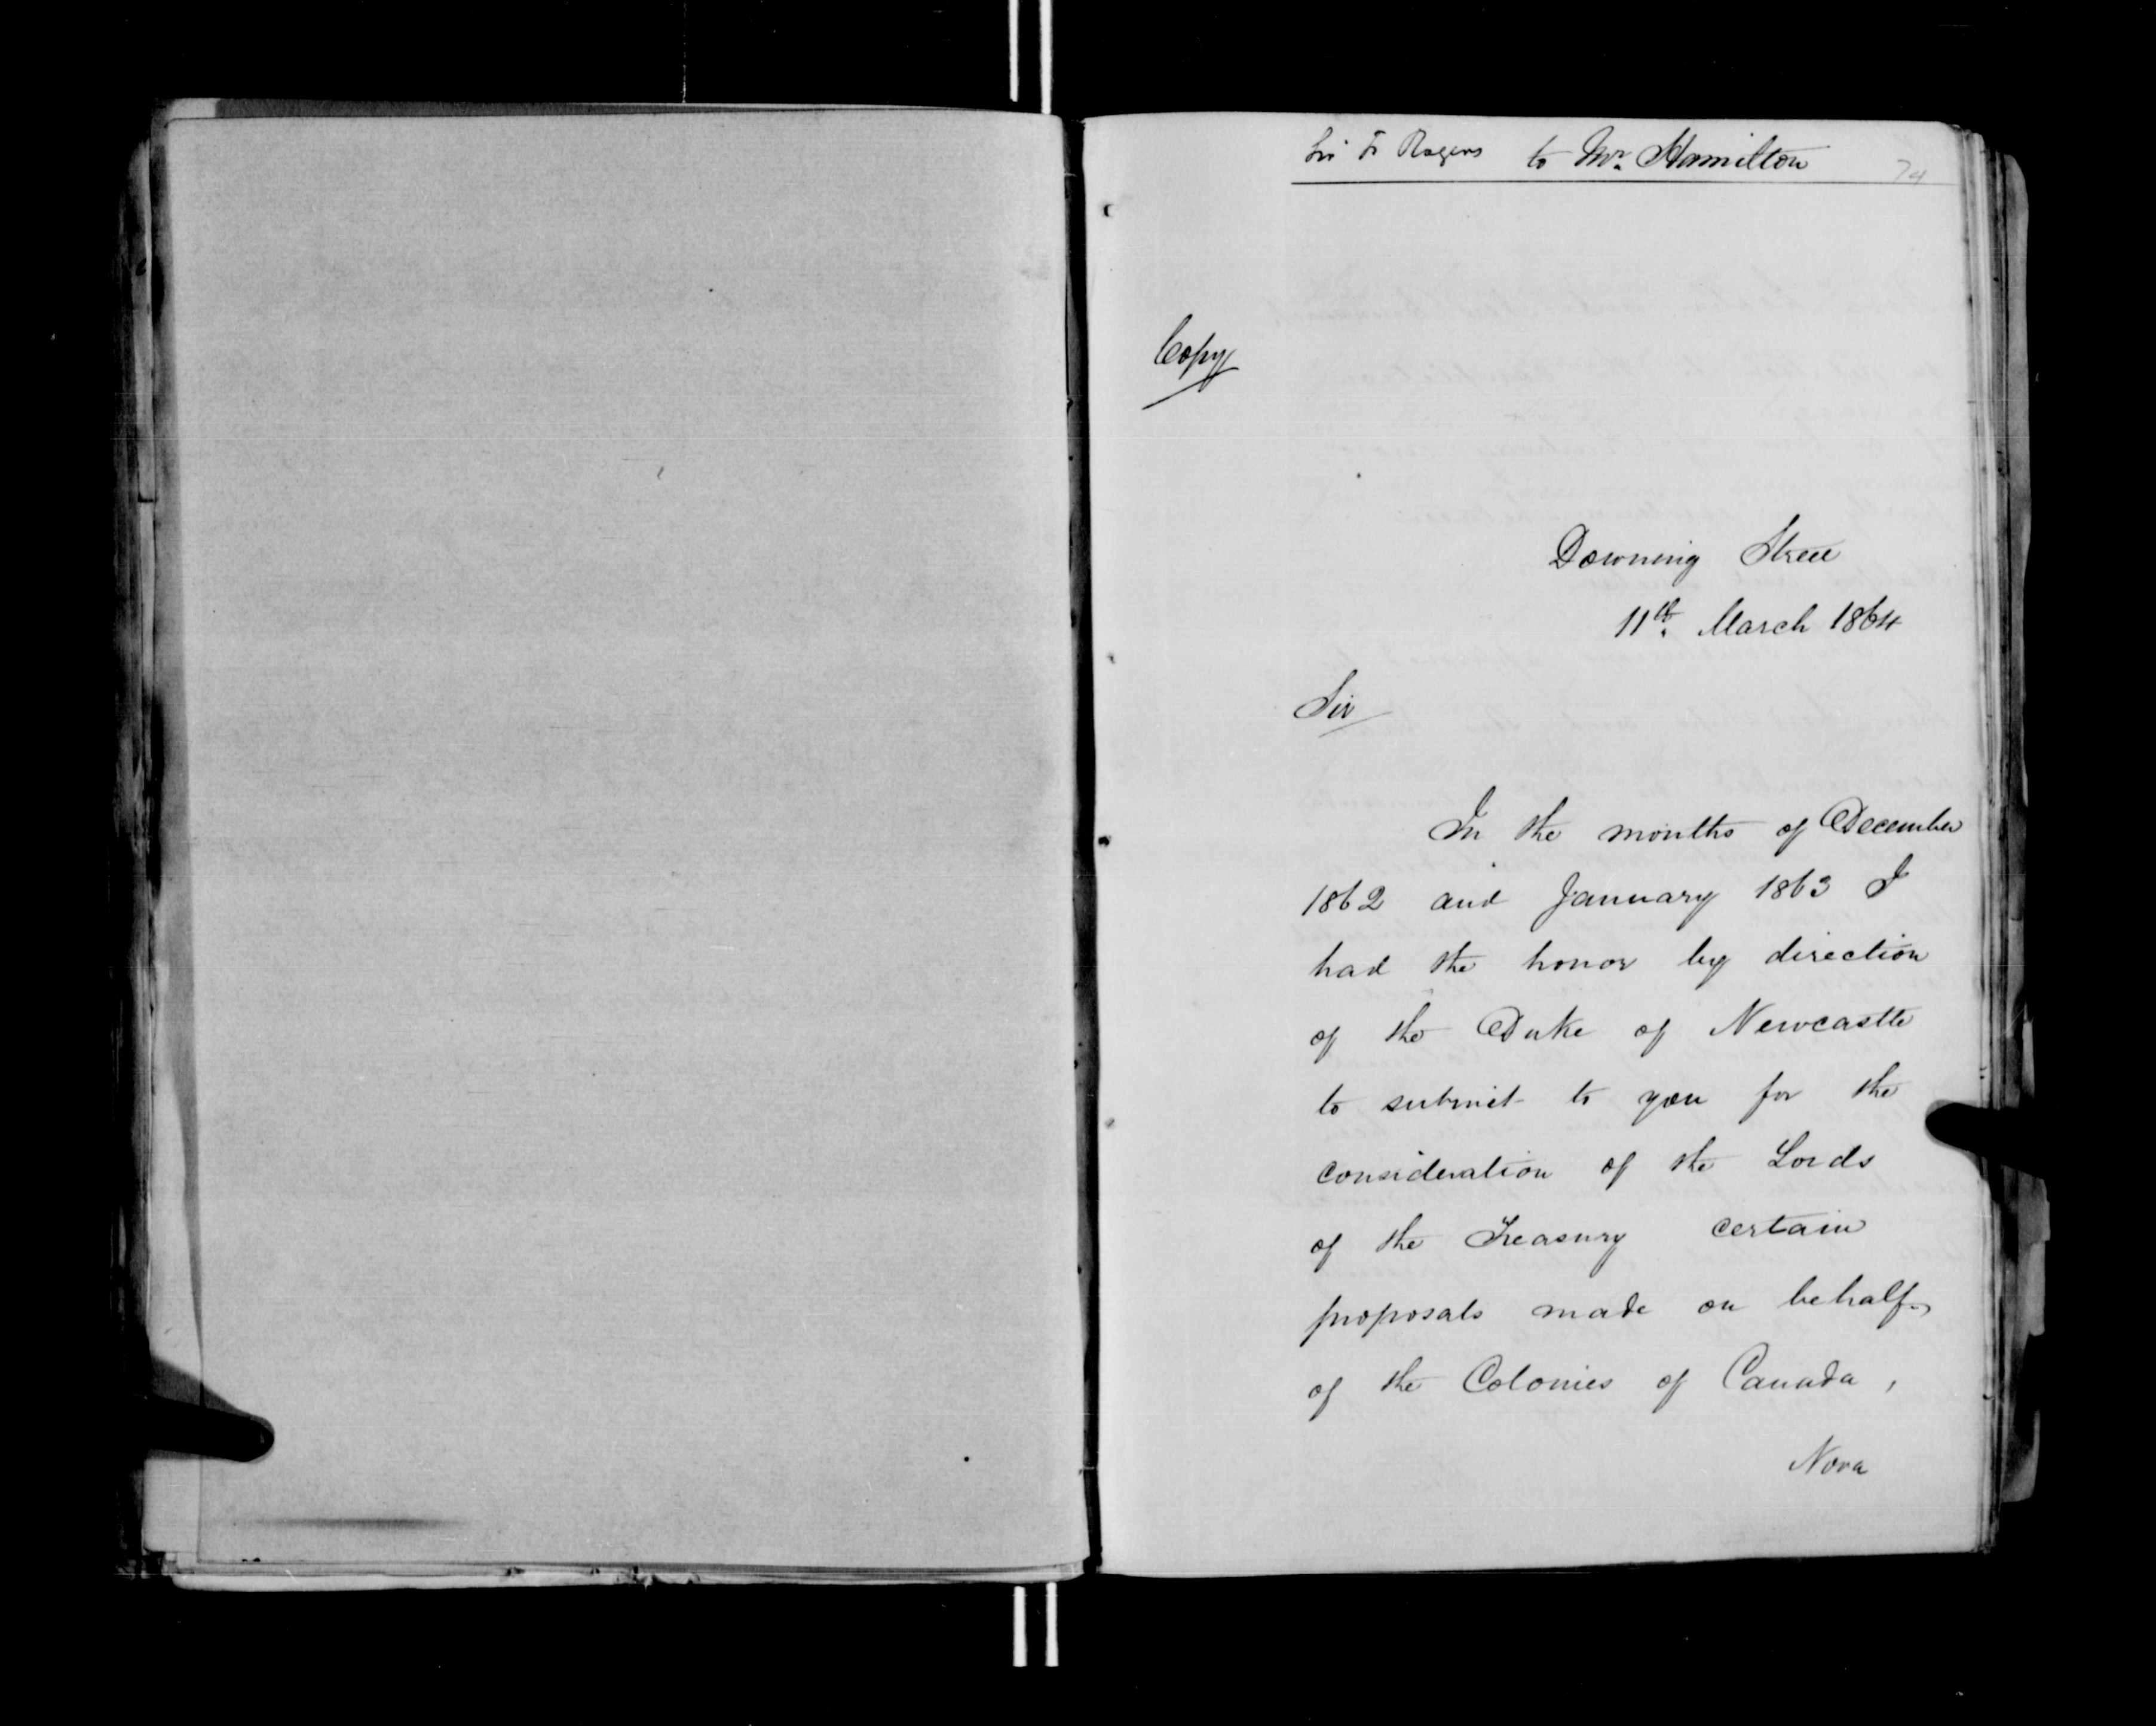 Sir F Rogers to Mr. Hamilton
74
Copy
Downing Street
11th. March 1864
Sir
In the months of December
1862 and January 1863 I
had the honor by direction
of the Duke of Newcastle
to submit to you for the
consideration of the Lords
of the Treasury certain
proposals made on behalf
of the Colonies of Canada,
Nova